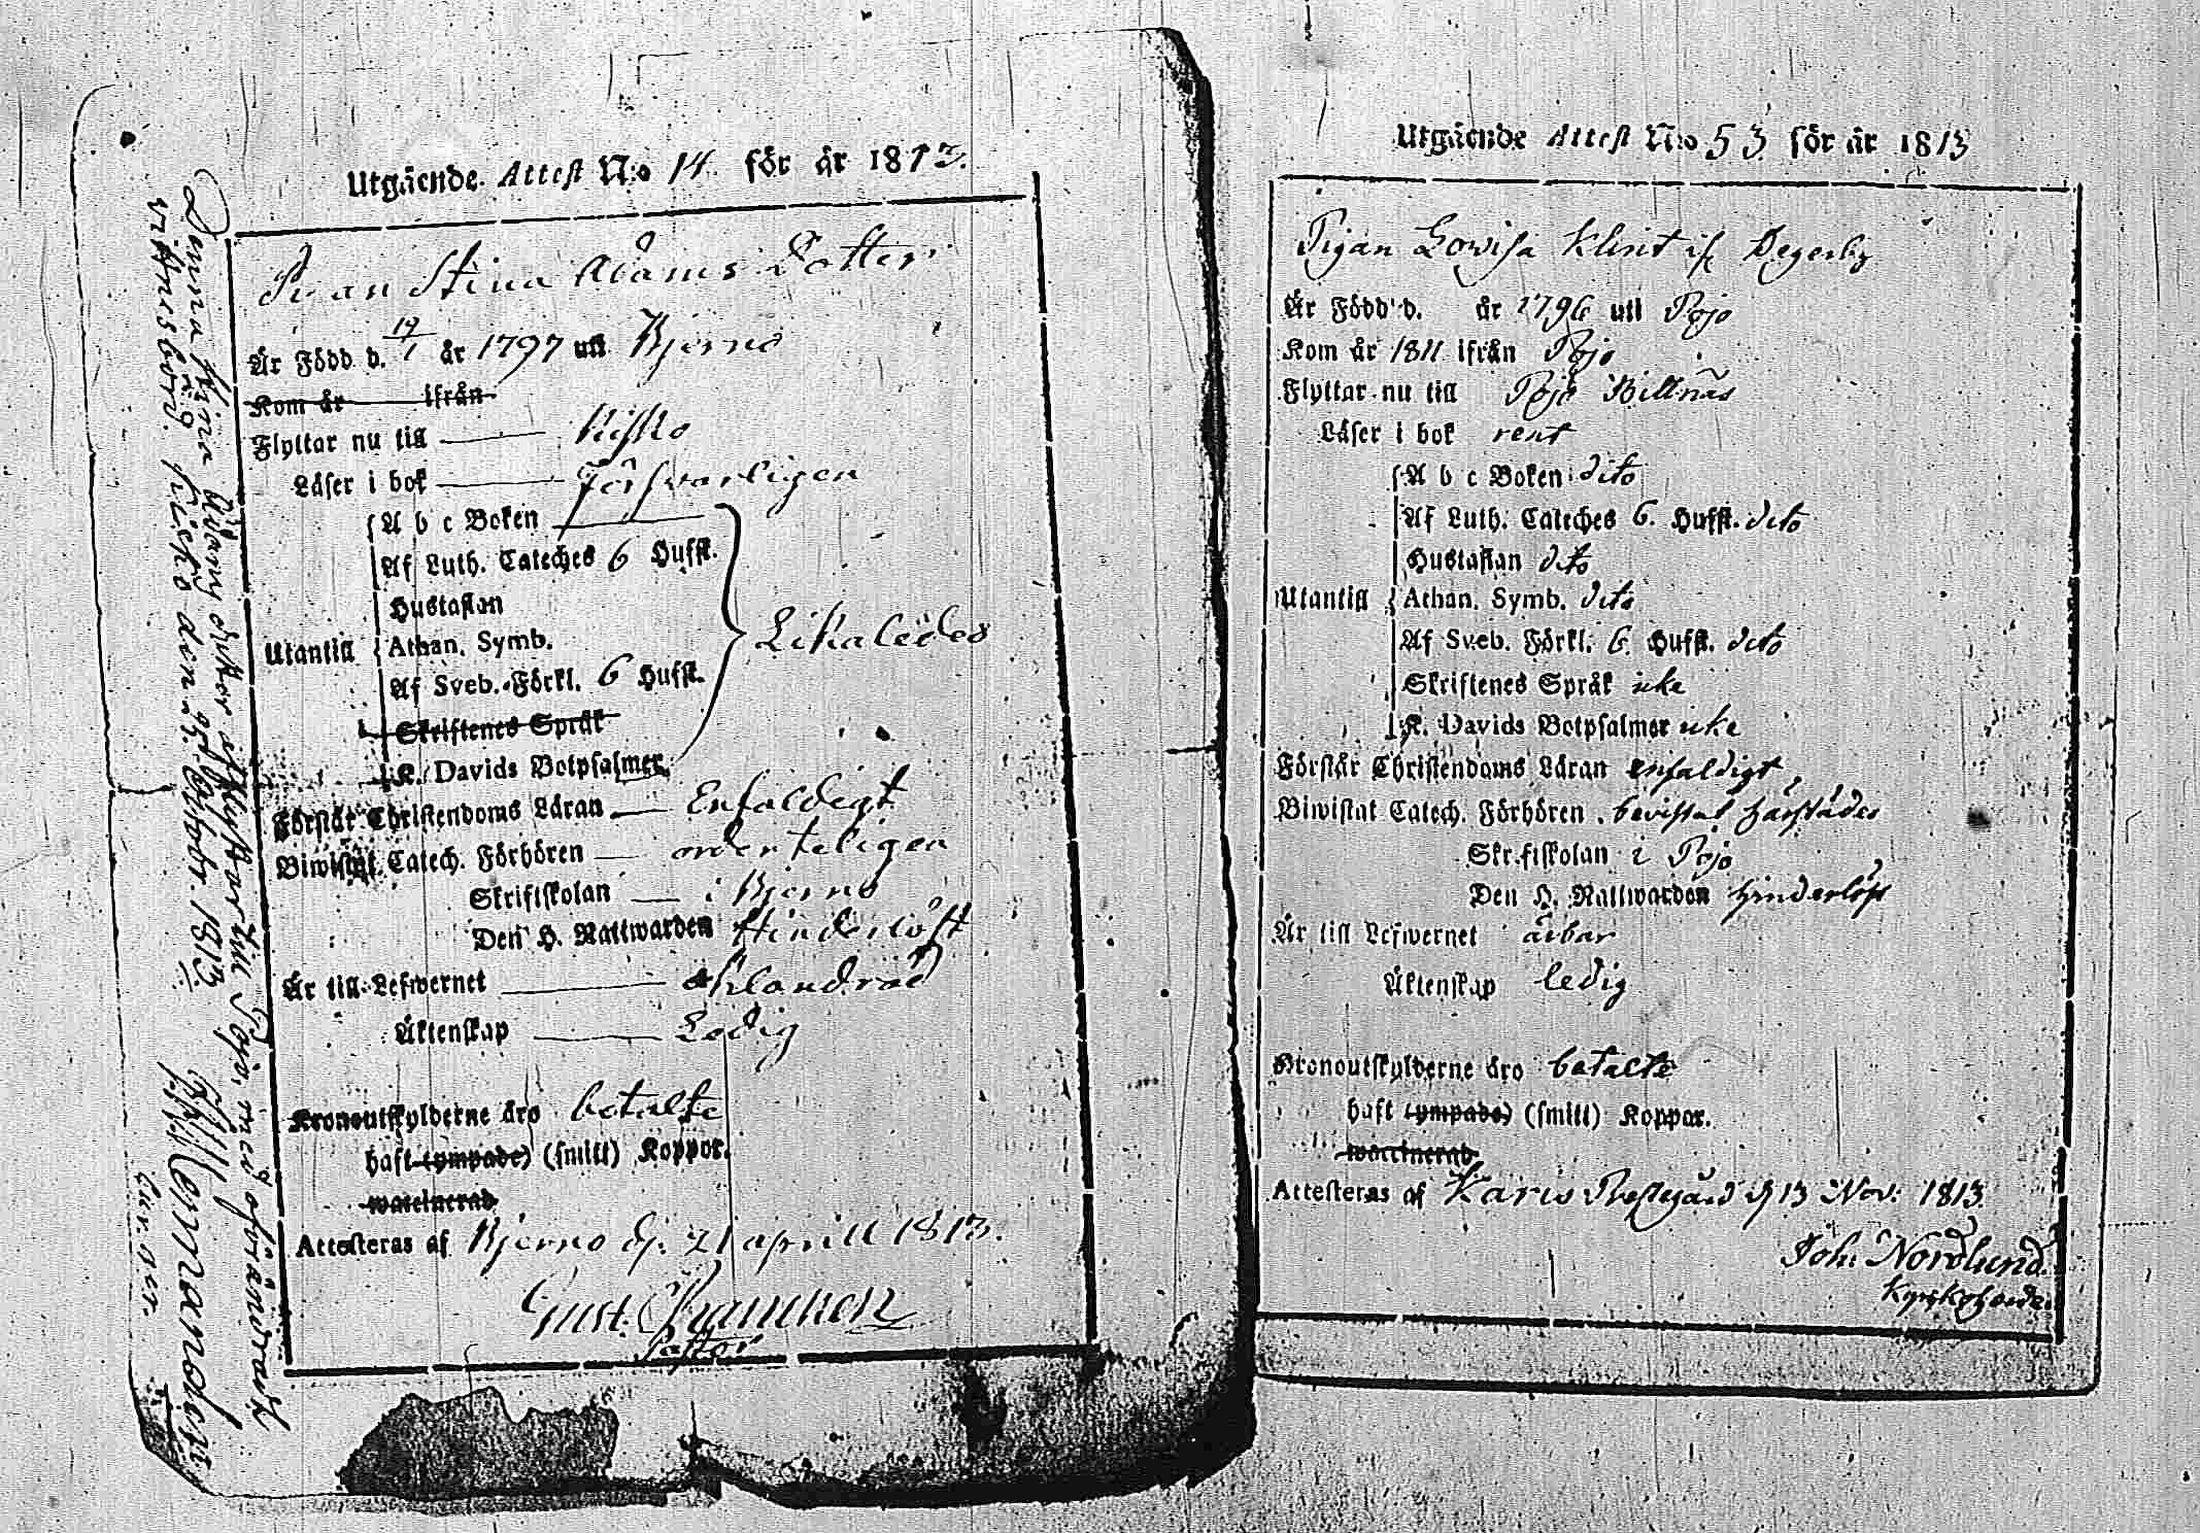 Utgående Attest N:o 14 för år 1813.
Pigan Stina Adams Dotter
Är Född d. 19/1 år 1797 uti Bjerno
Kom år ifrån
Flyttar nu till Kisko
Läser i bok Försvarligen
A b c Boken
Af Luth. Cateches 6 Hufst.
Hustaflan
Utantill Athan. Symb. Likaledes
Af Sveb. Förkl. 6 Hufst.
Skriftenes Språk
K. Davids Botpsalmer
Förstår Christendoms Läran Enfaldigt
Biwistat Catech. Förhören ordenteligen
Skriftskolan i Bjerno
Den H. Nattwarden Hinderlöst
Är till Lefwernet oklandrad
Äktenskap Ledig
Kronoutskylderne äro betalte
haft (ympade) (smitt) Koppor.
waccinerad
Attesteras af Bjerno d. 21 aprill 1813.
Gust.
Pastor
Denna Stina Adams dotter afflyttar till Pojo, med oförändradt
vitnesbörd. Kisko den 25 Octobr. 1813.
Utgående Attest N:o 53 för år 1813
Pigan Lowisa Klint if. Degerby
Är Född d. år 1796 uti Pojo
Kom år 1811 ifrån Pojo
Flyttar nu till Pojo Billnäs
Läser i bok rent
A b c Boken dito
Af Luth. Cateches 6. Hufst. dito
Hustaflan dito
Utantill Athan. Symb. dito
Af Sveb. Förkl. 6. Hufst. dito
Skriftenes Språk icke
K. Davids Botpsalmer icke
Förstår Christendoms Läran enfaldigt
Biwistat Catech. Förhören bevistat härstädes
Skriftskolan i Pojo
Den H. Nattwarden hinderlöst
Är till Lefwernet ärbar
Äktenskap ledig
Kronoutskylderne äro betalte
haft (ympade) (smitt) Koppor.
waccinerad
Attesteras af Karis Prestegård d 13 Nov: 1813.
Joh: Nordlund.
Kyrkoherde.